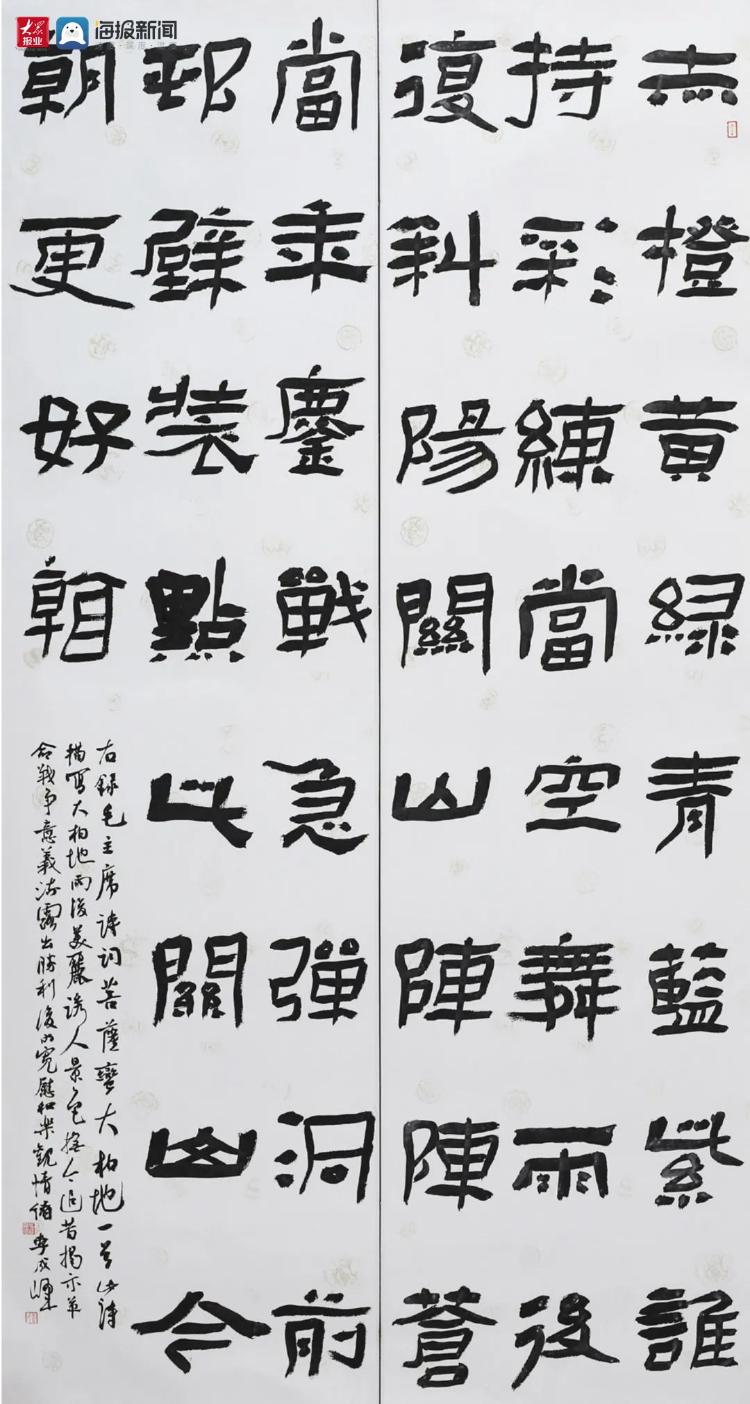 大眾
报业
海报新闻
赤橙黃綠青藍紫誰
持彩練當空舞雨後
復斜陽關山陣陣蒼
當年鏖戰急彈洞前
邨壁裝點此關山今
朝更好看
右録毛主席诗词菩薩蠻大柏地一首此詩
描写大柏地雨後美麗诱人景色撫今追昔揭示革
命戰争意義流露出勝利後的寬慰和樂觀情绪 李成